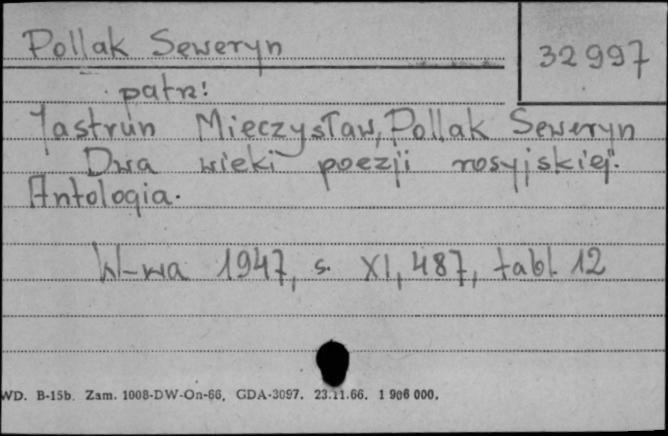 Pollak Seweryn
32997
patrz:
Jastrun Mieczysław, Pollak Seweryn
Dwa wieki poezji rosyjskiej.
Antologia.
W-wa 1947, s. XI, 487, tabl. 12
WD. B-15b. Zam. 1008-DW-On-66. GDA-3097. 23.11.66. 1 906 000.